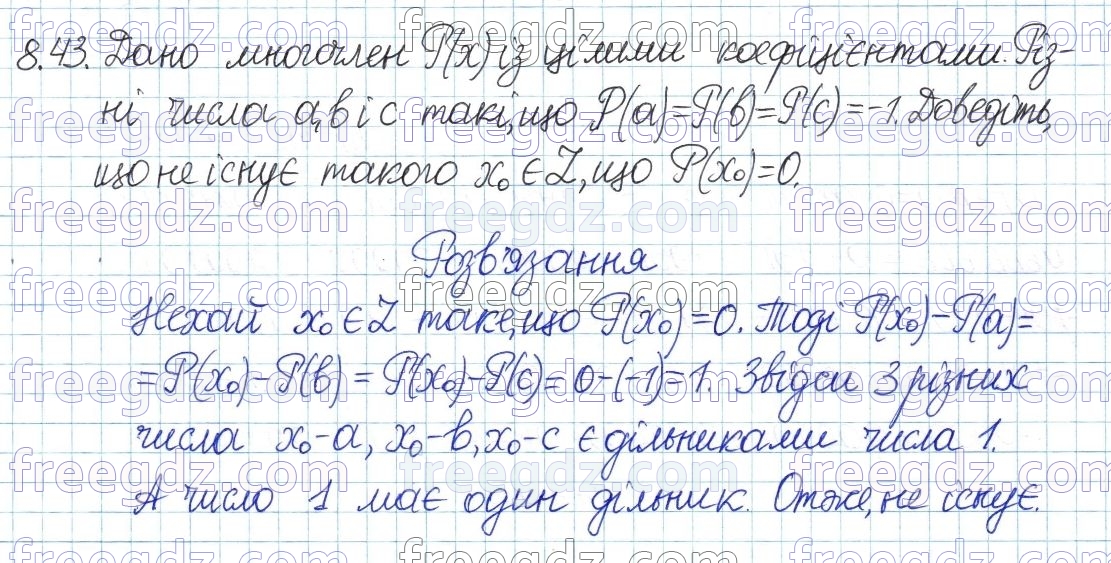 8.43. Дано многочлен P(x) із цілими коефіцієнтами. Різ-
ні числа a, b і c такі, що P(a)=P(b)=P(c)=-1. Доведіть,
що не існує такого x₀ ∈ Z, що P(x₀)=0.
Розв'язання
Нехай x₀ ∈ Z таке, що P(x₀)=0. Тоді P(x₀)-P(a)=
=P(x₀)-P(b)=P(x₀)-P(c)=0-(-1)=1. Звідси 3 різних
числа x₀-a, x₀-b, x₀-c є дільниками числа 1.
А число 1 має один дільник. Отже, не існує.
freegdz.com